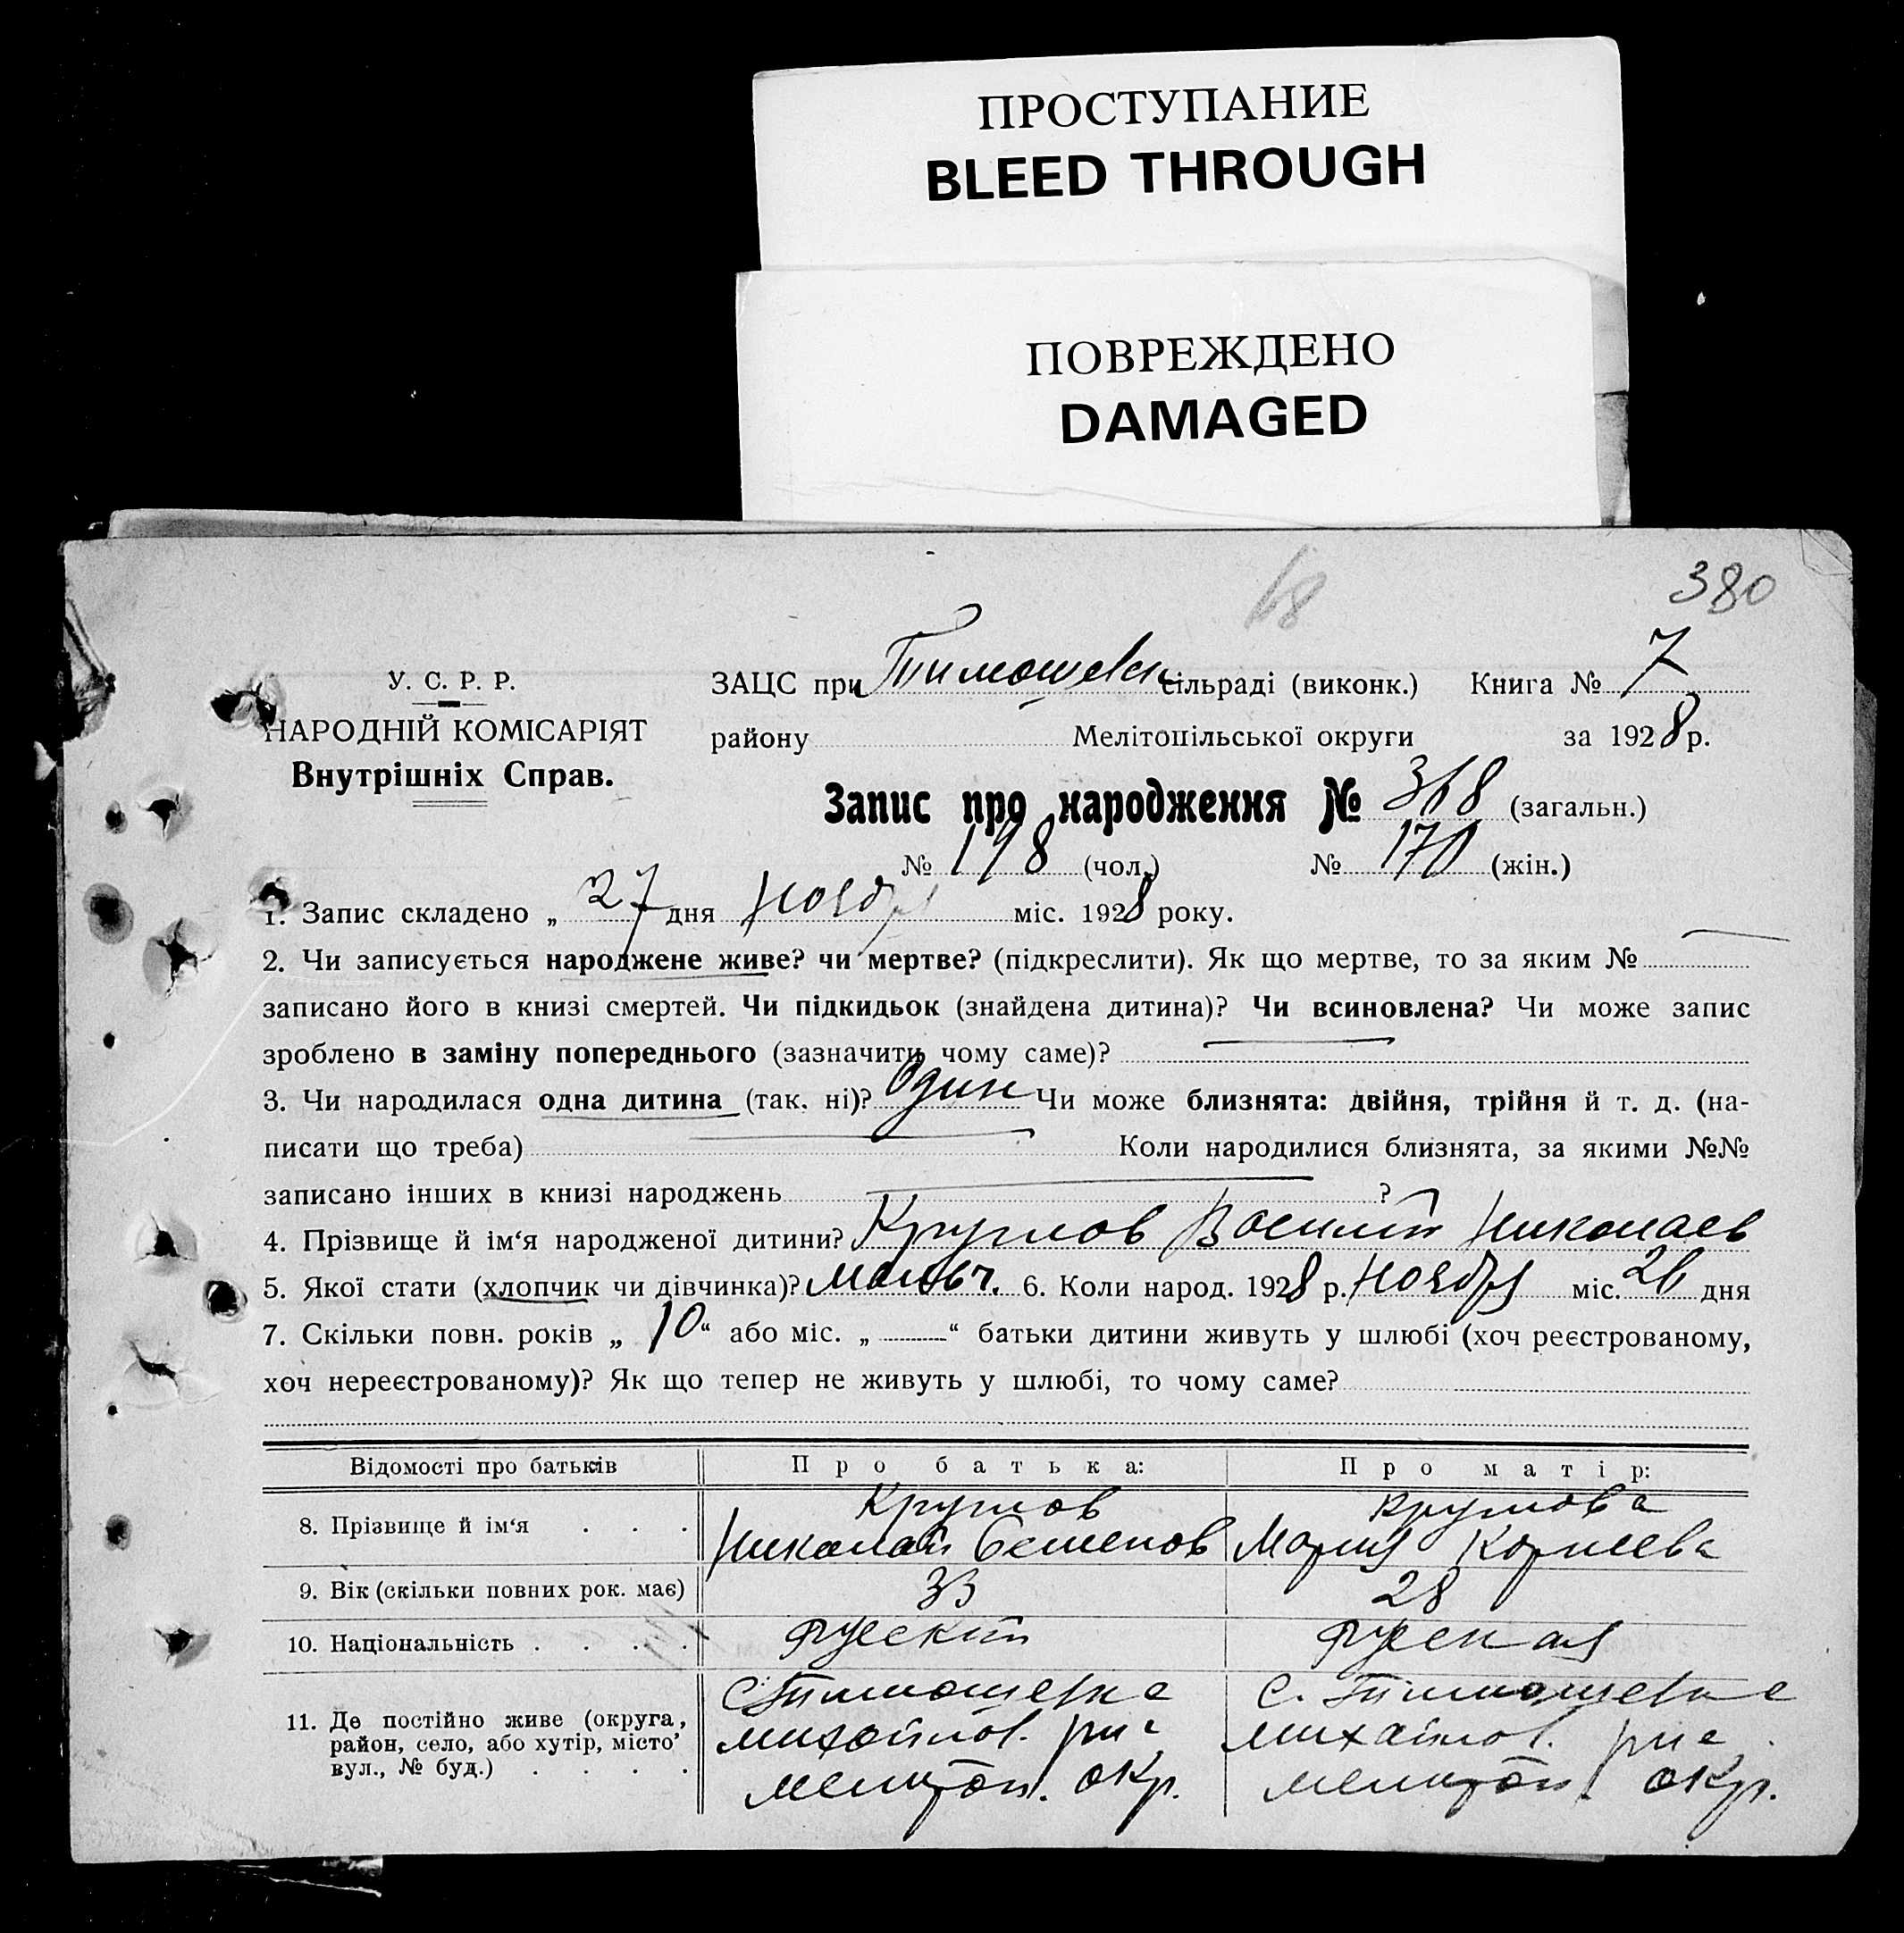 ПРОСТУПАНИЕ
BLEED THROUGH
ПОВРЕЖДЕНО
DAMAGED
68
380
У. С. Р. Р.
НАРОДНІЙ КОМІСАРІЯТ
Внутрішніх Справ.
ЗАЦС при Тимошевск сільраді (виконк.) Книга № 7
району Мелітопільської округи за 1928 р.
Запис про народження № 368 (загальн.)
№ 198 (чол.) № 170 (жін.)
1. Запис складено „ 27 дня Ноября міс. 1928 року.
2. Чи записується народжене живе? чи мертве? (підкреслити). Як що мертве, то за яким №
записано його в книзі смертей. Чи підкидьок (знайдена дитина)? Чи всиновлена? Чи може запис
зроблено в заміну попереднього (зазначити чому саме)?
3. Чи народилася одна дитина (так. ні)? Один Чи може близнята: двійня, трійня й т. д. (на-
писати що треба) Коли народилися близнята, за якими №№
записано інших в книзі народжень ?
4. Прізвище й ім‘я народженої дитини? Круглов Василий Николаев
5. Якої стати (хлопчик чи дівчинка)? Мальч. 6. Коли народ. 1928 р. Ноября міс. 26 дня
7. Скільки повн. років „ 10 “ або міс. „ “ батьки дитини живуть у шлюбі (хоч реєстрованому,
хоч нереєстрованому)? Як що тепер не живуть у шлюбі, то чому саме?
Відомості про батьків Про батька: Про матір:
8. Прізвище й ім‘я . . . Круглов Круглова
Николай Семенов Мария Корнеева
9. Вік (скільки повних рок. має) 33 28
10. Національність . . . . Русский Русская
11. Де постійно живе (округа, с. Тимошевка с. Тимошевка
район, село, або хутір, місто, михайлов. рна михайлов. рна
вул., № буд.) . . . . мелитоп. окр. мелитоп. окр.